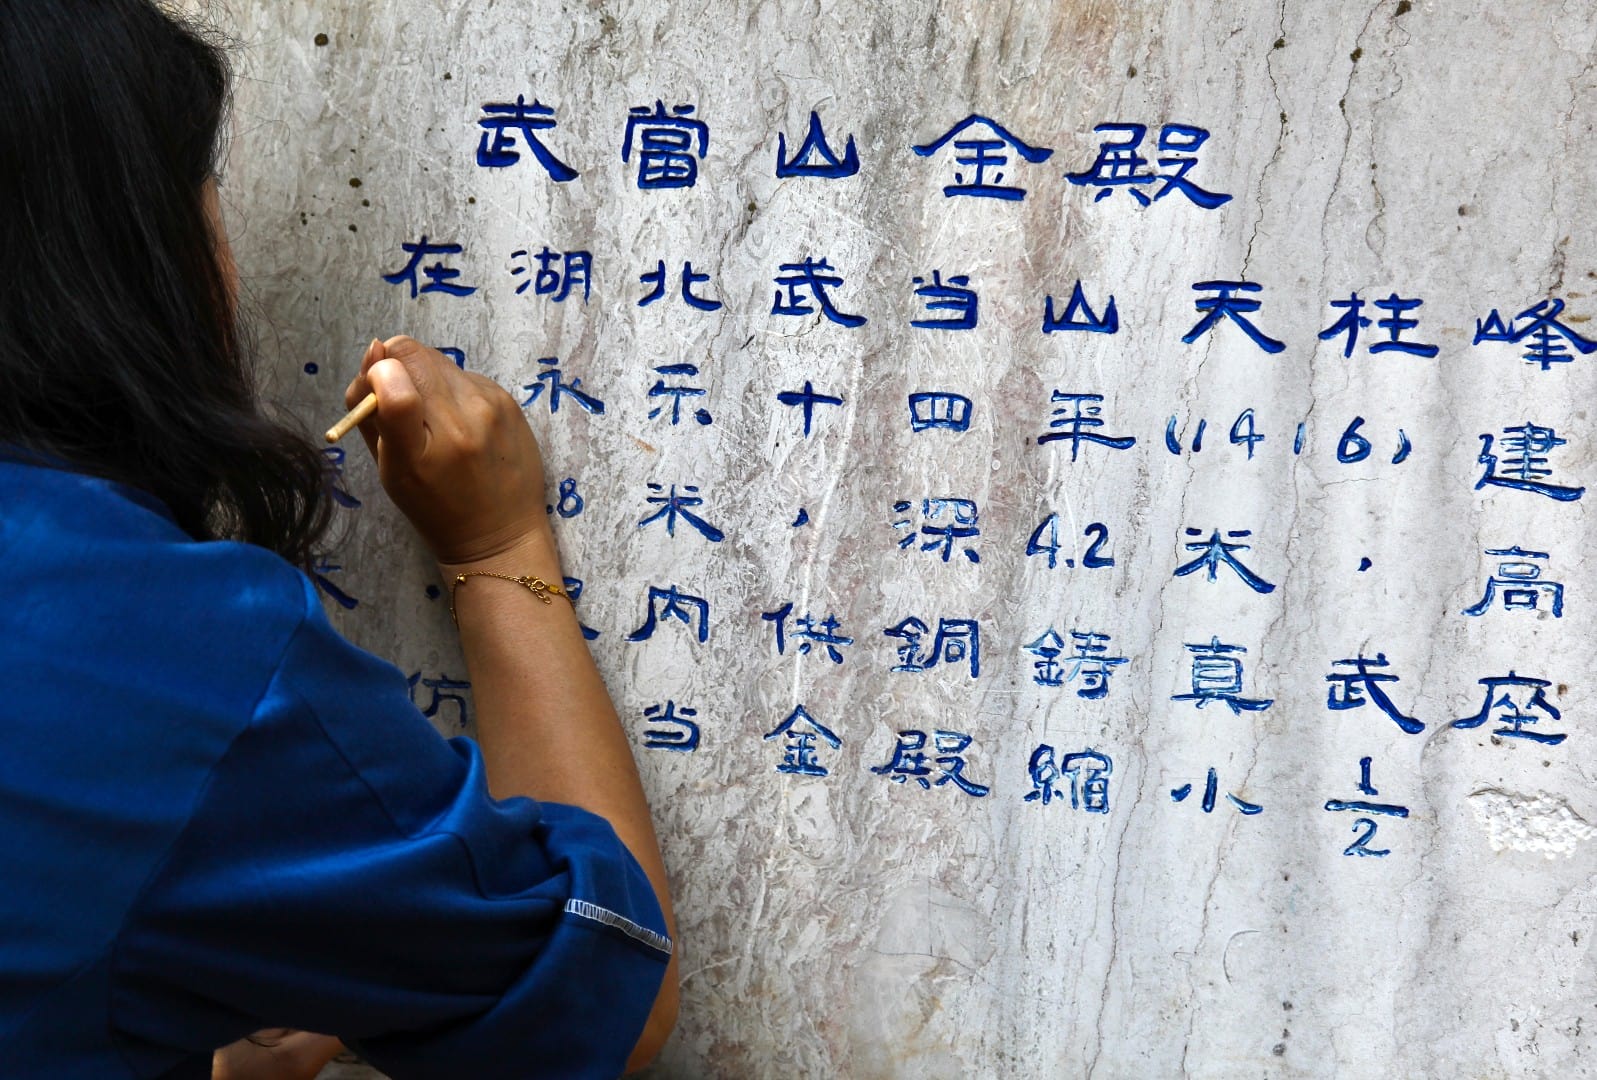 武當山金殿
在湖北武当山天柱峰
。永乐十四年(1416)建
.8米,深4.2米,高
. 内供銅鑄真武座
仿 当金殿縮小1/2